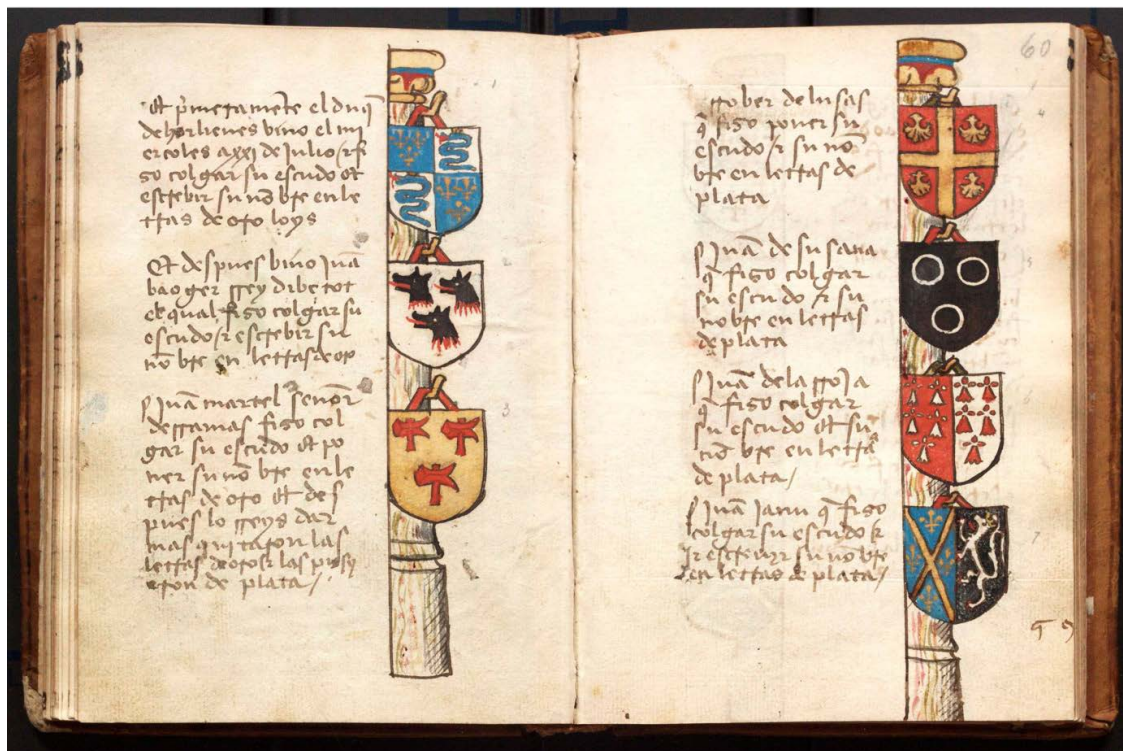 Et p̃meramẽte el duq̃
de horlienes bino el mi
ercoles a xxi de Julio / ⁊ fi
zo colgar su escudo et
escrebir su nõ bre en le
tras de oro loys
Et despues bino Juã
baoger rrey dibetot
el qual fizo colgar su
escudo / ⁊ escrebir su
nõ bre en letras de oro
Juã martel señor
de rramas fizo col
gar su escudo et po
ner su nõ bre en le
tras de oro et des
pues lo rreys dar
mas quitaron las
letras de oro ⁊ las pusy
eron de plata /
1
2
3
60
rrober de lusas
q̃ fizo poner su
escudo / ⁊ su nõ
bre en letras de
plata
Juã de susana
q̃ fizo colgar
su escudo ⁊ su
nobre en letras
de plata
Juã de la rroja
q̃ fizo colgar
su escudo et su
nõ bre en letra
de plata /
Juã Janu q̃ fizo
colgar su escudo
⁊ escrebyr su nõ bre
en letras de plata /
4
5
6
7